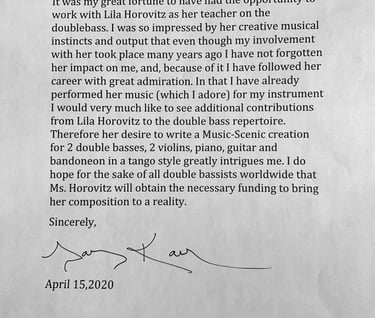 It was my great fortune to have had the opportunity to
work with Lila Horovitz as her teacher on the
doublebass. I was so impressed by her creative musical
instincts and output that even though my involvement
with her took place many years ago I have not forgotten
her impact on me, and, because of it I have followed her
career with great admiration. In that I have already
performed her music (which I adore) for my instrument
I would very much like to see additional contributions
from Lila Horovitz to the double bass repertoire.
Therefore her desire to write a Music-Scenic creation
for 2 double basses, 2 violins, piano, guitar and
bandoneon in a tango style greatly intrigues me. I do
hope for the sake of all double bassists worldwide that
Ms. Horovitz will obtain the necessary funding to bring
her composition to a reality.
Sincerely,
April 15,2020